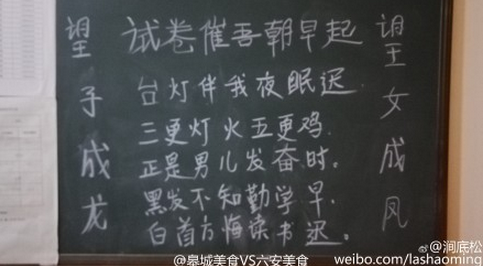 望子成龙
试卷催吾朝早起
台灯伴我夜眠迟.
三更灯火五更鸡.
正是男儿发奋时.
黑发不知勤学早.
白首方悔读书迟.
望女成风
@涧底松
@皋城美食VS六安美食
weibo.com/lashaoming